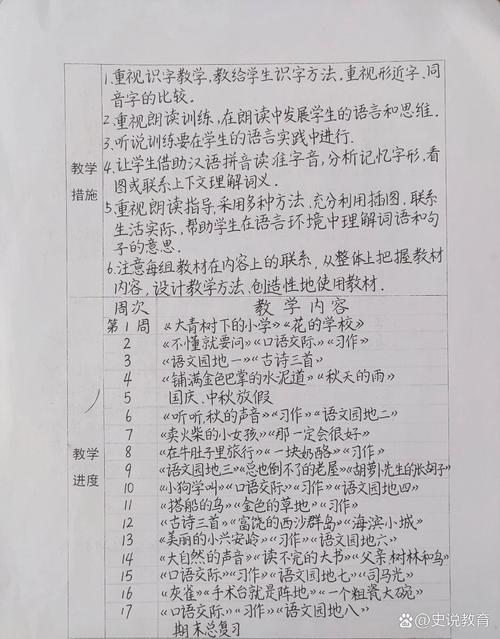 教学措施
1.重视识字教学,教给学生识字方法,重视形近字、同
音字的比较.
2.重视朗读训练,在朗读中发展学生的语言和思维.
3.听说训练要在学生的语言实践中进行.
4.让学生借助汉语拼音读准字音,分析记忆字形,看
图或联系上下文理解词义.
5.重视朗读指导,采用多种方法.充分利用插图,联系
生活实际,帮助学生在语言环境中理解词语和句
子的意思.
6.注意每组教材在内容上的联系,从整体上把握教材
内容,设计教学方法、创造性地使用教材.
教学进度
周次 教学内容
第1周 《大青树下的小学》《花的学校》
2 《不懂就要问》《口语交际》《习作》
3 《语文园地一》《古诗三首》
4 《铺满金色巴掌的水泥道》《秋天的雨》
5 国庆、中秋放假
6 《听听,秋的声音》《习作》《语文园地二》
7 《卖火柴的小女孩》《那一定会很好》
8 《在牛肚子里旅行》《一块奶酪》《习作》
9 《语文园地三》《总也倒不了的老屋》《胡萝卜先生的长胡子》
10 《小狗学叫》《口语交际》《习作》《语文园地四》
11 《搭船的鸟》《金色的草地》《习作》
12 《古诗三首》《富饶的西沙群岛》《海滨小城》
13 《美丽的小兴安岭》《习作》《语文园地六》
14 《大自然的声音》《读不完的大书》《父亲、树林和鸟》
15 《口语交际》《习作》《语文园地七》《司马光》
16 《灰雀》《手术台就是阵地》《一个粗瓷大碗》
17 《口语交际》《习作》《语文园地八》
期末总复习
史说教育